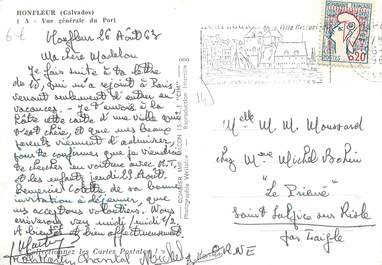 HONFLEUR (Calvados)
1 A - Vue générale du Port
6 €
Honfleur 26 Août 63
Ma chère Madelon
Je fais suite à ta lettre
du 20, qui m'a rejoint à Paris,
venant seulement d'entrer en
vacances. Je t'envoie à la
hâte cette carte d'une ville qui
t'est chère, et que mes beaux
parents viennent d'admirer,
pour te confirmer que je viendrai
te chercher en voiture avec M.T.
et les enfants jeudi 29 Août.
Remercier Colette de sa bonne
invitation à déjeuner, que
nous acceptons volontiers. Nous
arriverons vers midi/midi ½
A bientôt et bien affectueusement
Chantal Michel
Collectionnez les Cartes Postales
REPUBLIQUE FRANÇAISE
POSTES
0,20
Melle M. M. Moussard
chez Mme Michel Bohin
"Le Prieuré"
Saint Sulpice sur Risle
par Laigle
ORNE